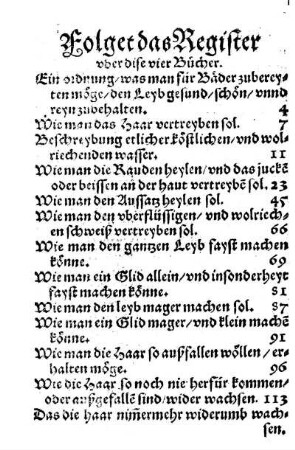 Folget das Register
vber dise vier Bücher.
Ein ordnung/was man für Bäder zuberey-
ten möge/den Leyb gesund/schön/vnnd
reyn zubehalten. 4
Wie man das Haar vertreyben sol. 7
Beschreybung etlicher köstlichen/vnd wol-
riechenden wasser. 11
Wie man die Rauden heylen/vnd das juckē
oder beissen an der haut vertreybē sol. 23
Wie man den Aussatz heylen sol. 45
Wie man den vberflüssigen/vnd wolriech-
en schweiß vertreyben sol. 66
Wie man den gantzen Leyb fayst machen
könne. 69
Wie man ein Glid allein/vnd insonderheyt
fayst machen könne. 81
Wie man den leyb mager machen sol. 87
Wie man ein Glid mager/vnd klein machē
könne. 91
Wie man die Haar so außfallen wöllen/er-
halten möge. 96
Wie die Haar so noch nie herfür kommen/
oder außgefallē sind/wider wachsen. 113
Das die haar nim̄ermehr widerumb wach-
sen.